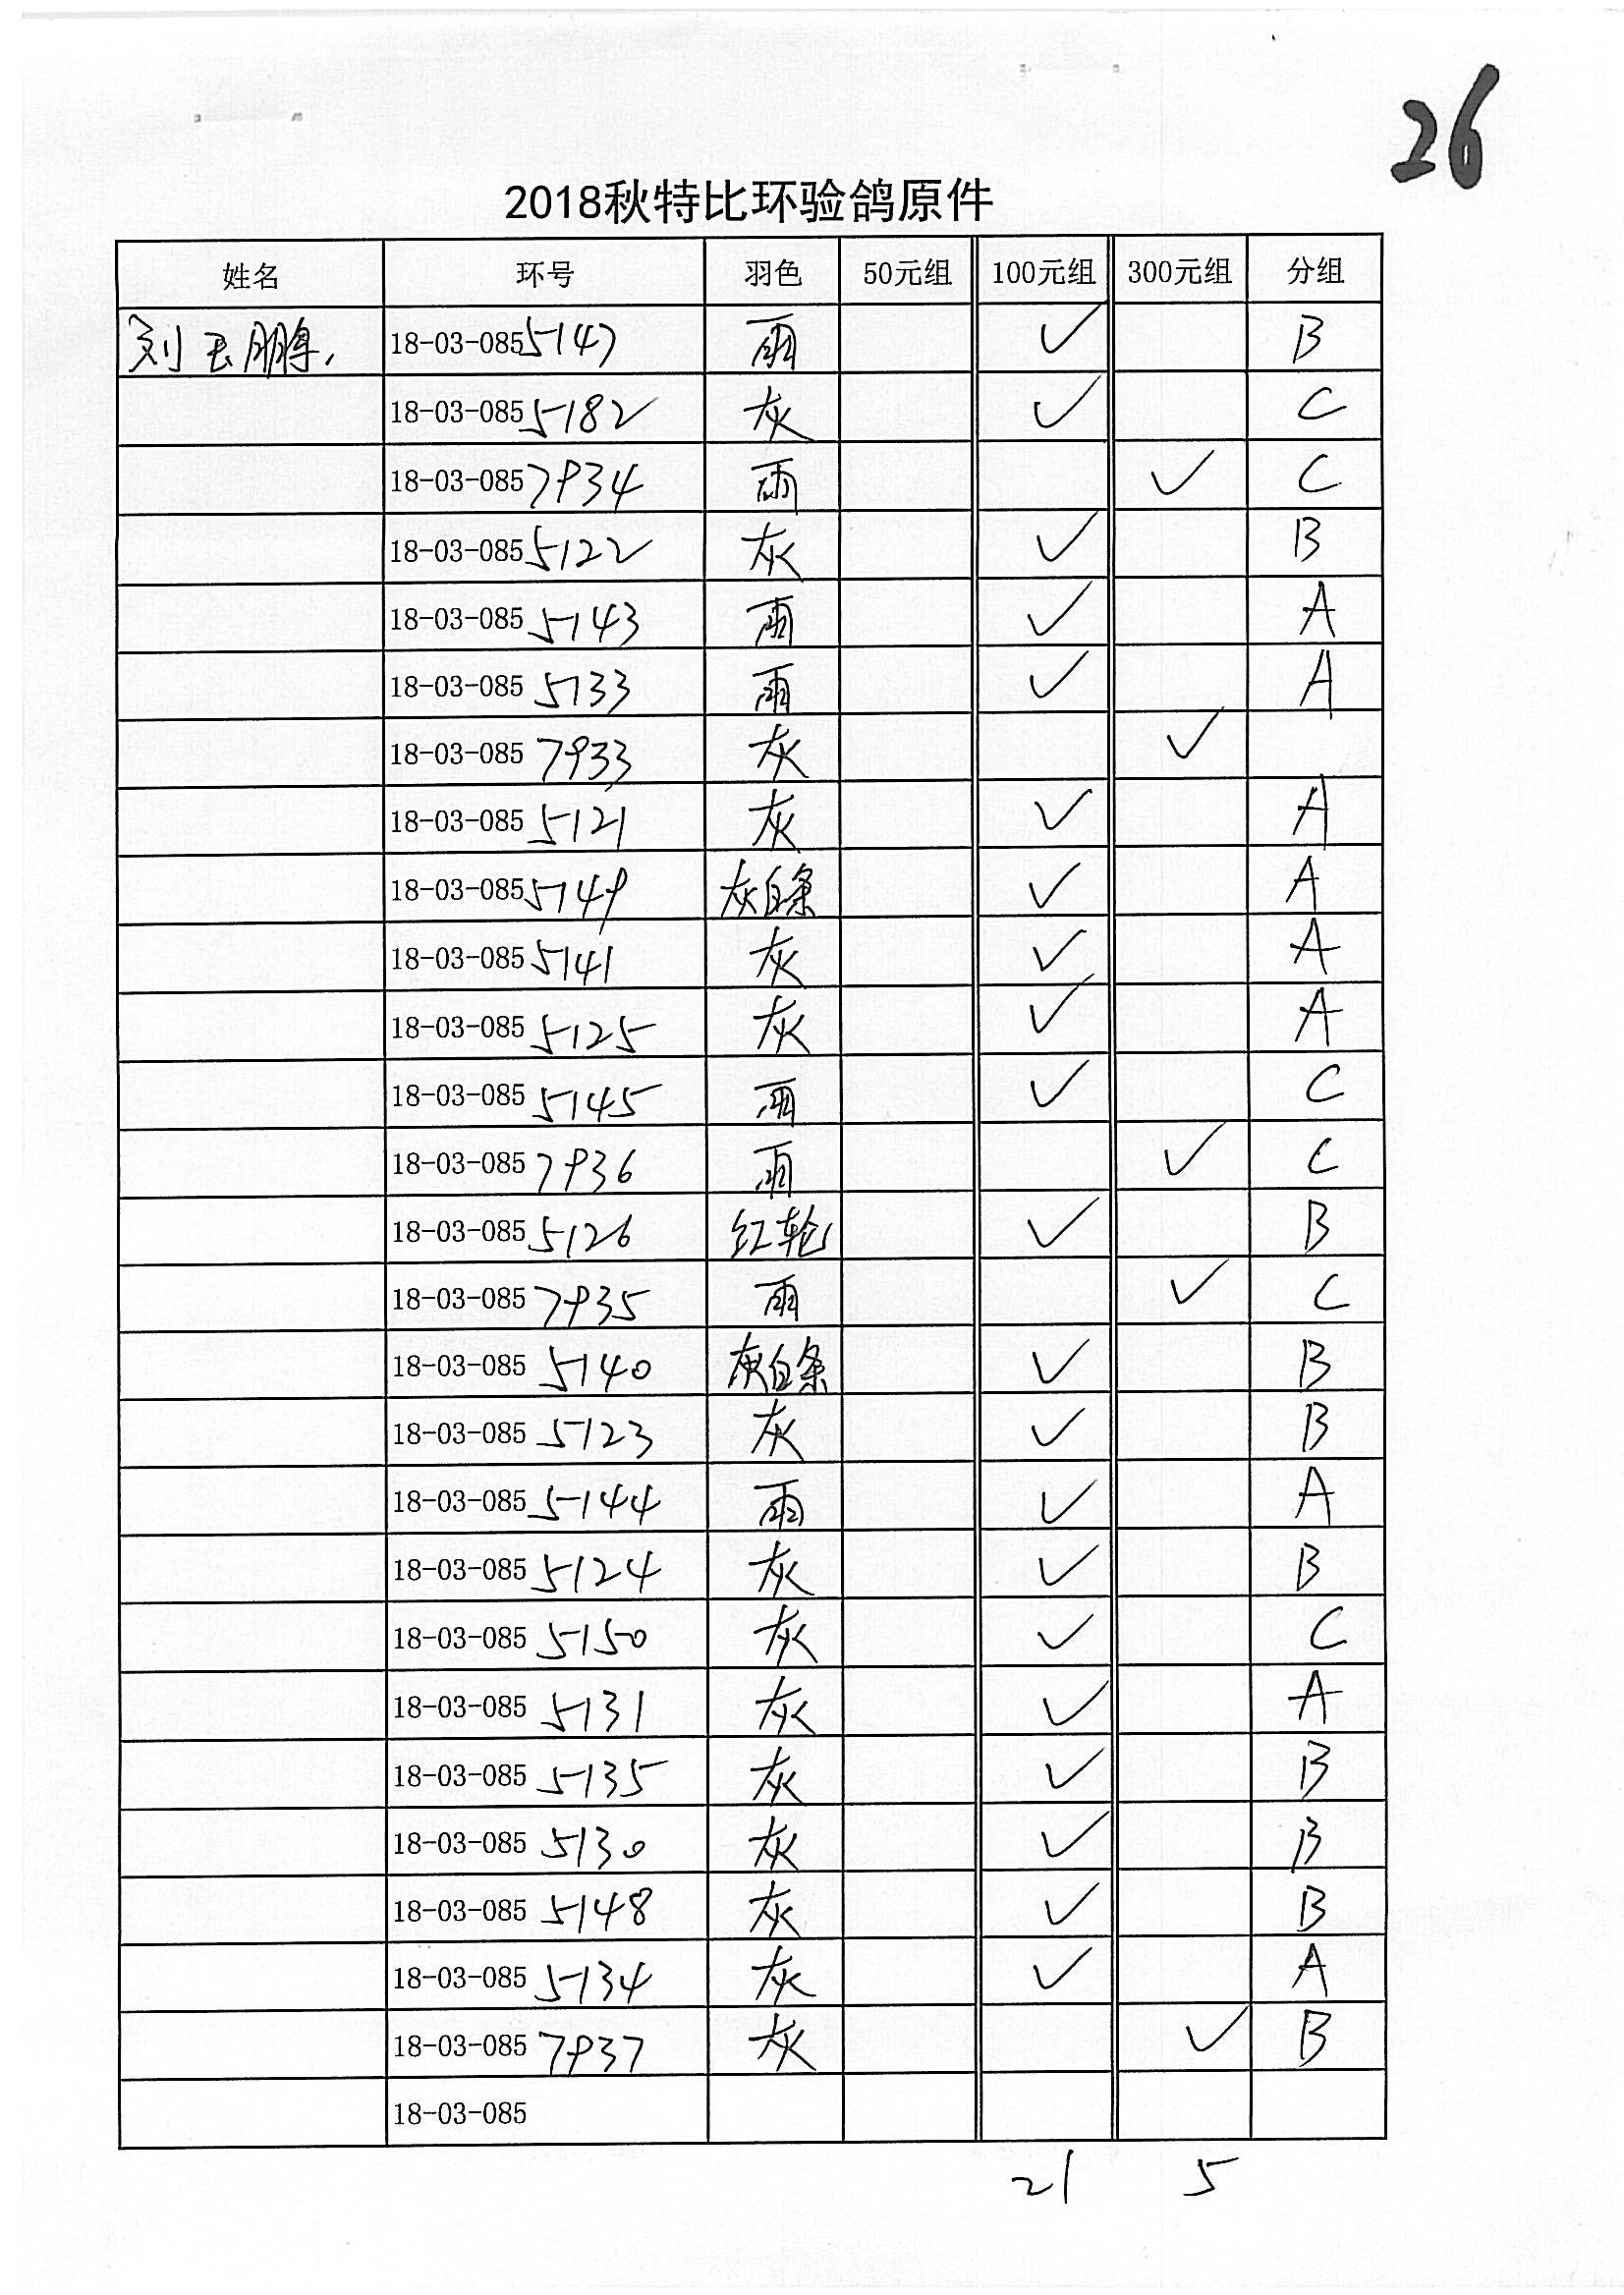 26
2018秋特比环验鸽原件
姓名 环号 羽色 50元组 100元组 300元组 分组
刘玉鹏 18-03-0855147 雨 ✓ B
18-03-0855182 灰 ✓ C
18-03-0857934 雨 ✓ C
18-03-0855122 灰 ✓ B
18-03-0855143 雨 ✓ A
18-03-0855133 雨 ✓ A
18-03-0857933 灰 ✓
18-03-0855121 灰 ✓ A
18-03-0855149 灰白条 ✓ A
18-03-0855141 灰 ✓ A
18-03-0855125 灰 ✓ A
18-03-0855145 雨 ✓ C
18-03-0857936 雨 ✓ C
18-03-0855126 红轮 ✓ B
18-03-0857935 雨 ✓ C
18-03-0855140 灰白条 ✓ B
18-03-0855123 灰 ✓ B
18-03-0855144 雨 ✓ A
18-03-0855124 灰 ✓ B
18-03-0855150 灰 ✓ C
18-03-0855131 灰 ✓ A
18-03-0855135 灰 ✓ B
18-03-0855130 灰 ✓ B
18-03-0855148 灰 ✓ B
18-03-0855134 灰 ✓ A
18-03-0857937 灰 ✓ B
18-03-085
21 5